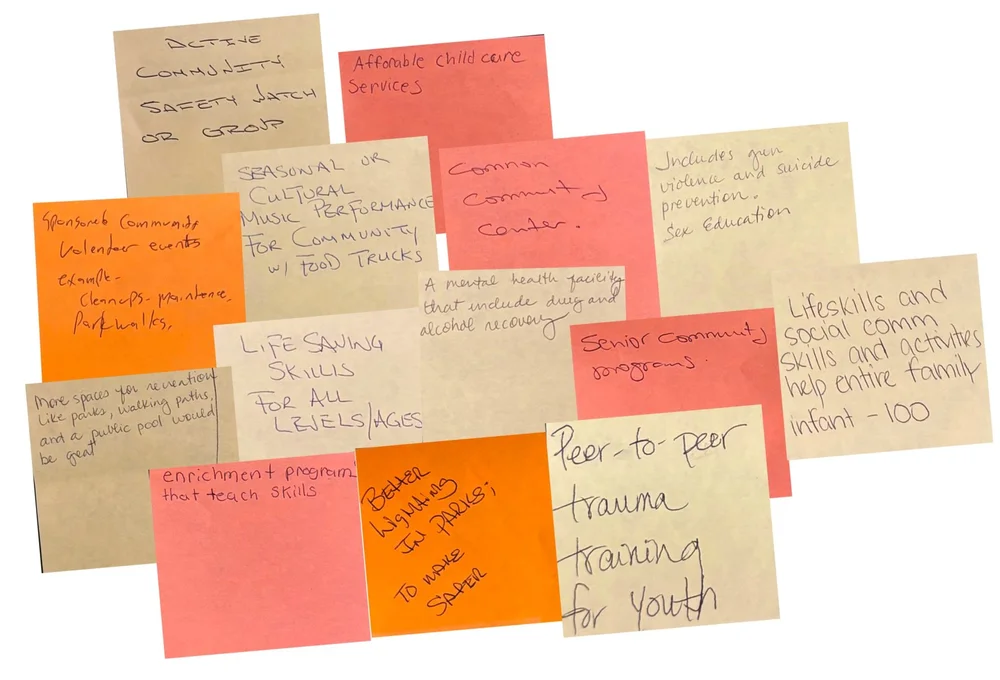 ACTIVE
COMMUNITY
SAFETY WATCH
OR GROUP
Afforable child care
Services
SEASONAL OR
CULTURAL
MUSIC PERFORMANCE
FOR COMMUNITY
w/ FOOD TRUCKS
Common
Community
Center.
Includes gun
violence and suicide
prevention.
Sex Education
Sponsored Community
Volenteer events
example-
Cleanups- Maintence,
Park walks,
A mental health facility
that include drug and
alcohol recovery
Lifeskills and
social comm
skills and activities
help entire family
infant - 100
LIFE SAVING
SKILLS
FOR ALL
LEVELS/AGES
Senior Community
programs.
More spaces for
like parks, walking paths,
and a public pool would
be great
enrichment program
that teach skills
BETTER
LIGHTING
IN PARKS;
TO MAKE
SAFER
Peer-to-peer
trauma
training
for youth